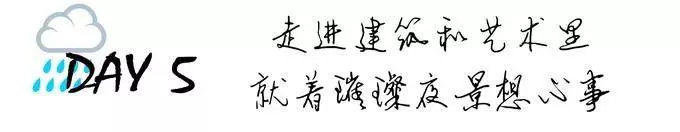 DAY 5
走进建筑和艺术里
就着璀璨夜景想心事